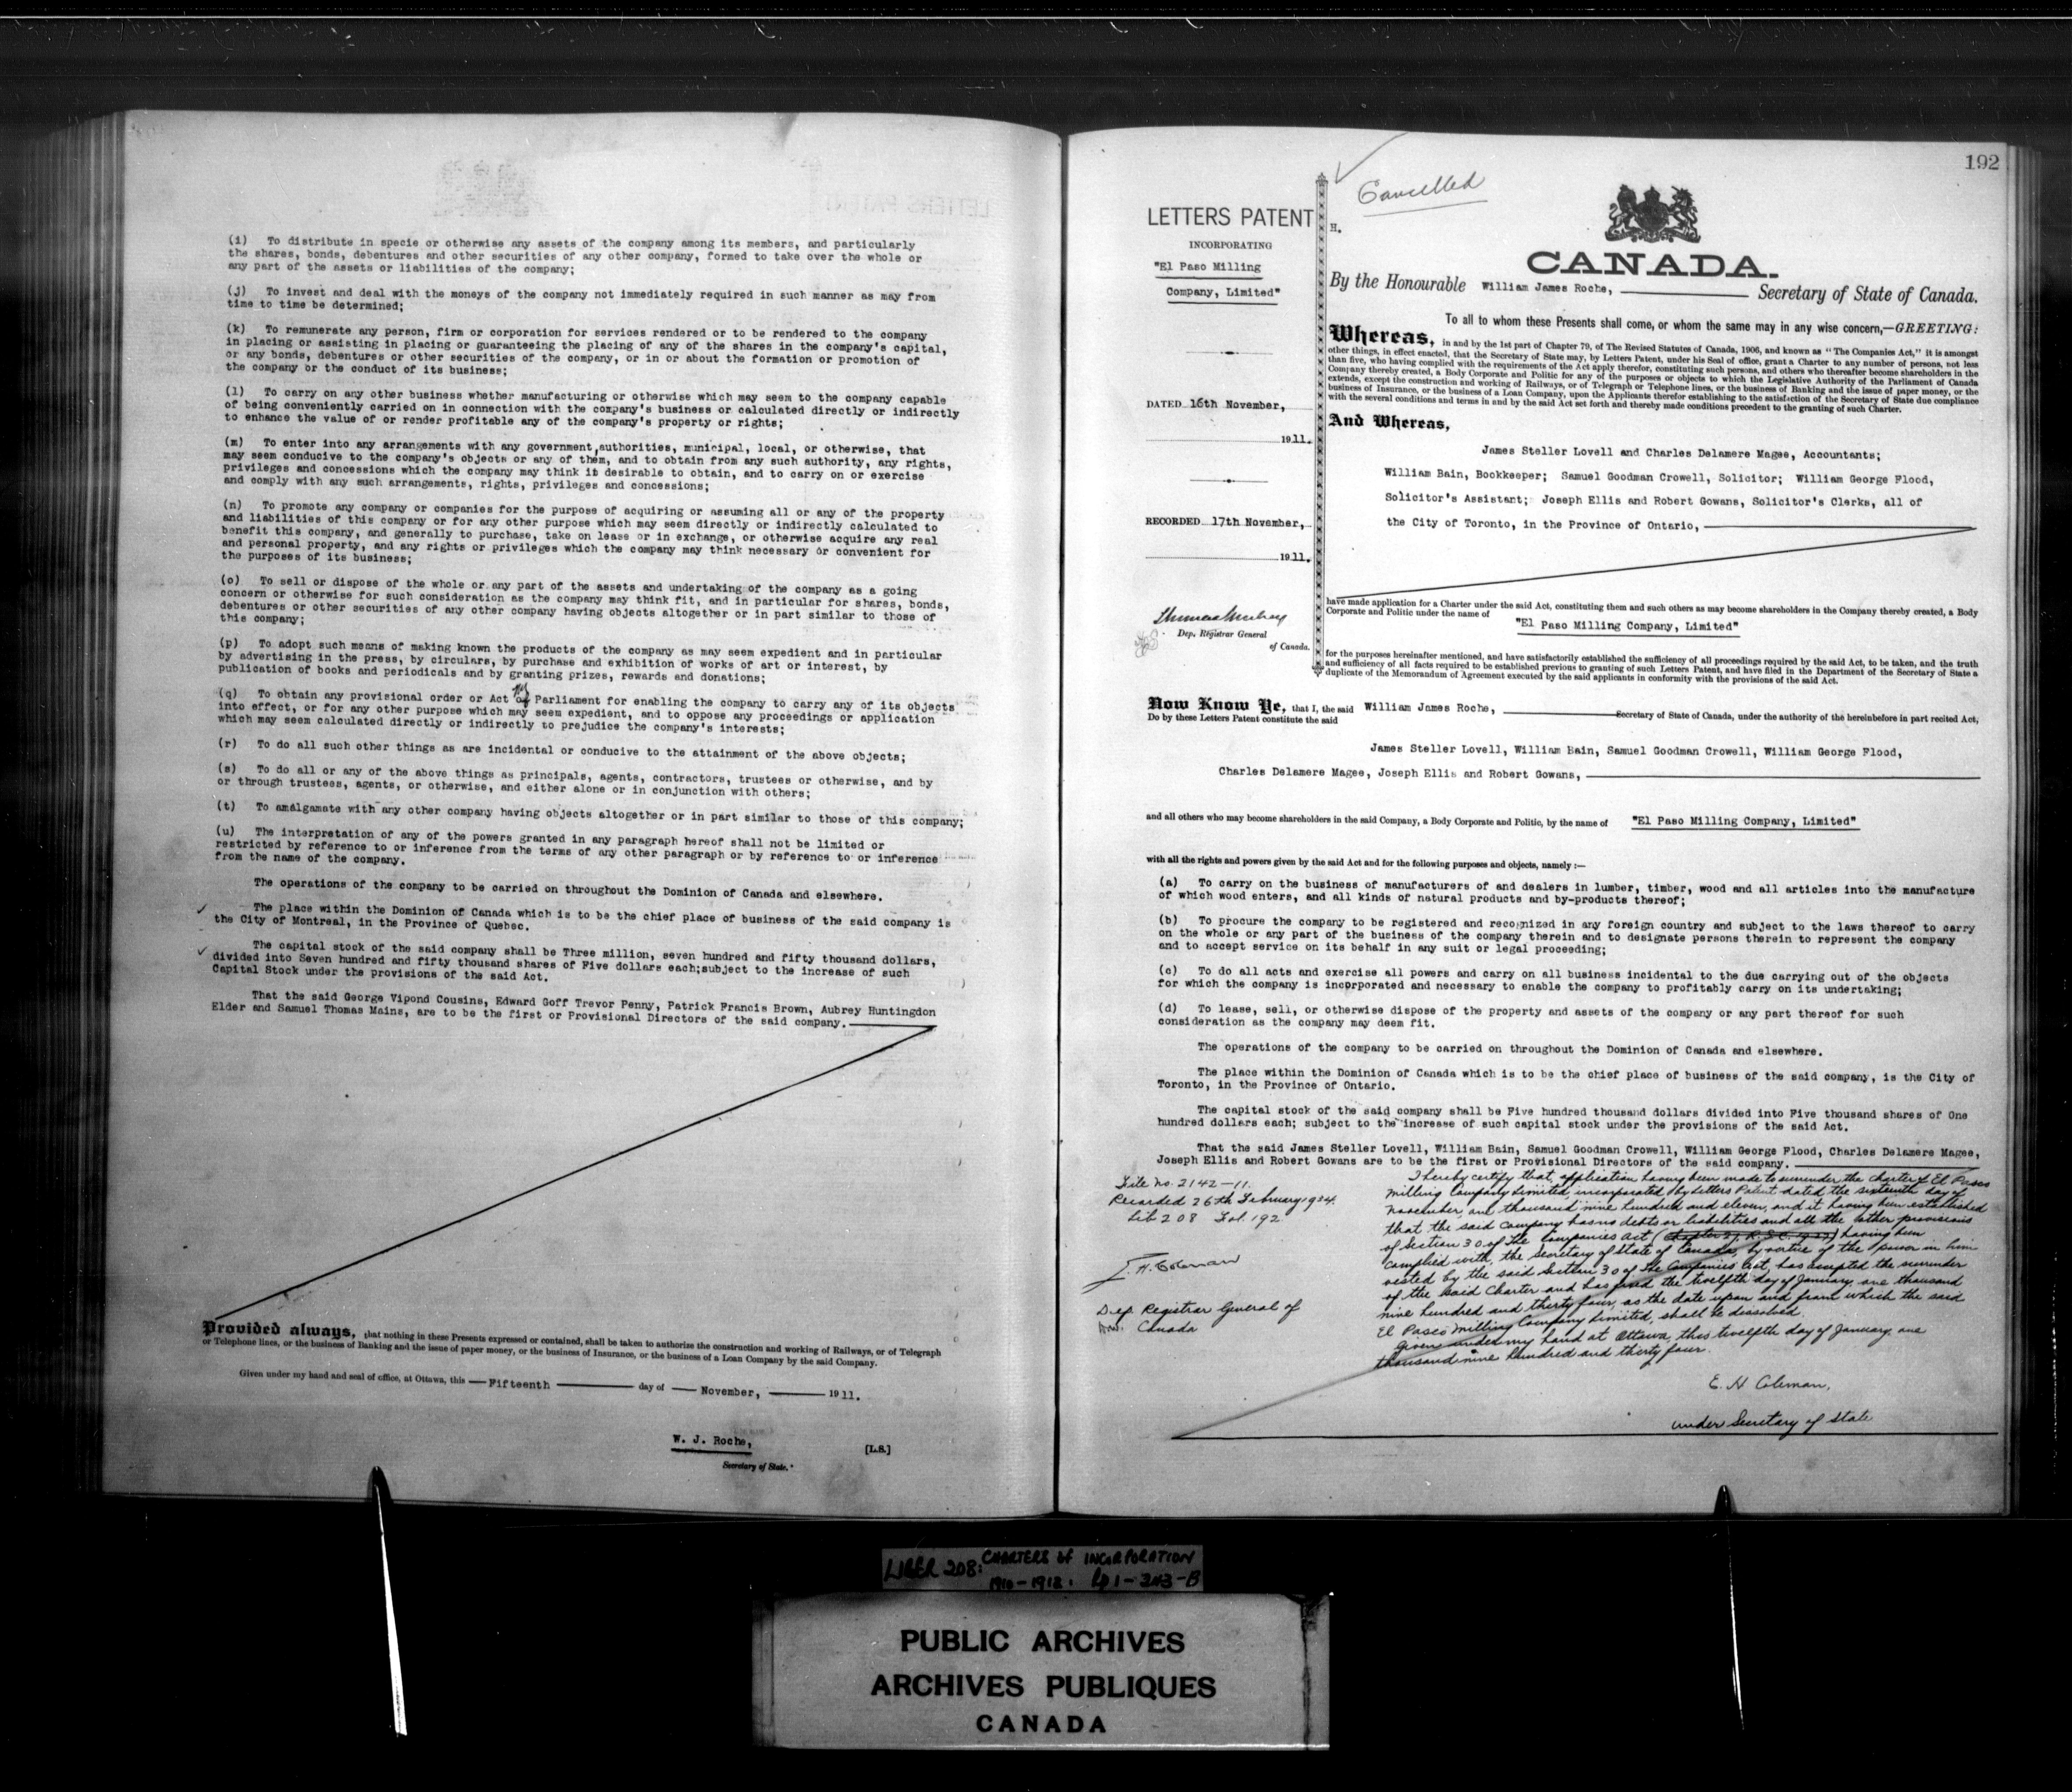 (i) To distribute in specie or otherwise any assets of the company among its members, and particularly
the shares, bonds, debentures and other securities of any other company, formed to take over the whole or
any part of the assets or liabilities of the company;
(j) To invest and deal with the moneys of the company not immediately required in such manner as may from
time to time be determined;
(k) To remunerate any person, firm or corporation for services rendered or to be rendered to the company
in placing or assisting in placing or guaranteeing the placing of any of the shares in the company's capital,
or any bonds, debentures or other securities of the company, or in or about the formation or promotion of
the company or the conduct of its business;
(l) To carry on any other business whether manufacturing or otherwise which may seem to the company capable
of being conveniently carried on in connection with the company's business or calculated directly or indirectly
to enhance the value of or render profitable any of the company's property or rights;
(m) To enter into any arrangements with any government, authorities, municipal, local, or otherwise, that
may seem conducive to the company's objects or any of them, and to obtain from any such authority, any rights,
privileges and concessions which the company may think it desirable to obtain, and to carry on or exercise
and comply with any such arrangements, rights, privileges and concessions;
(n) To promote any company or companies for the purpose of acquiring or assuming all or any of the property
and liabilities of this company or for any other purpose which may seem directly or indirectly calculated to
benefit this company, and generally to purchase, take on lease or in exchange, or otherwise acquire any real
and personal property, and any rights or privileges which the company may think necessary or convenient for
the purposes of its business;
(o) To sell or dispose of the whole or any part of the assets and undertaking of the company as a going
concern or otherwise for such consideration as the company may think fit, and in particular for shares, bonds,
debentures or other securities of any other company having objects altogether or in part similar to those of
this company;
(p) To adopt such means of making known the products of the company as may seem expedient and in particular
by advertising in the press, by circulars, by purchase and exhibition of works of art or interest, by
publication of books and periodicals and by granting prizes, rewards and donations;
(q) To obtain any provisional order or Act of Parliament for enabling the company to carry any of its objects
into effect, or for any other purpose which may seem expedient, and to oppose any proceedings or application
which may seem calculated directly or indirectly to prejudice the company's interests;
(r) To do all such other things as are incidental or conducive to the attainment of the above objects;
(s) To do all or any of the above things as principals, agents, contractors, trustees or otherwise, and by
or through trustees, agents, or otherwise, and either alone or in conjunction with others;
(t) To amalgamate with any other company having objects altogether or in part similar to those of this company;
(u) The interpretation of any of the powers granted in any paragraph hereof shall not be limited or
restricted by reference to or inference from the terms of any other paragraph or by reference to or inference
from the name of the company.
The operations of the company to be carried on throughout the Dominion of Canada and elsewhere.
The place within the Dominion of Canada which is to be the chief place of business of the said company is
the City of Montreal, in the Province of Quebec.
The capital stock of the said company shall be Three million, seven hundred and fifty thousand dollars,
divided into Seven hundred and fifty thousand shares of Five dollars each; subject to the increase of such
Capital Stock under the provisions of the said Act.
That the said George Vipond Cousins, Edward Goff Trevor Penny, Patrick Francis Brown, Aubrey Huntingdon
Elder and Samuel Thomas Mains, are to be the first or Provisional Directors of the said company.
Provided always, that nothing in these Presents expressed or contained, shall be taken to authorize the construction and working of Railways, or of Telegraph
or Telephone lines, or the business of Banking and the issue of paper money, or the business of Insurance, or the business of a Loan Company by the said Company.
Given under my hand and seal of office, at Ottawa, this Fifteenth day of November, 1911.
W. J. Roche,
[L.S.]
Secretary of State.
192
Cancelled
LETTERS PATENT
INCORPORATING
"El Paso Milling
Company, Limited"
DATED 16th November,
1911.
RECORDED 17th November,
1911.
Thomas Mulvey
Dep. Registrar General
of Canada.
H.
CANADA.
By the Honourable William James Roche, Secretary of State of Canada.
To all to whom these Presents shall come, or whom the same may in any wise concern,—GREETING:
Whereas, in and by the 1st part of Chapter 79, of The Revised Statutes of Canada, 1906, and known as "The Companies Act," it is amongst
other things, in effect enacted, that the Secretary of State may, by Letters Patent, under his Seal of office, grant a Charter to any number of persons, not less
than five, who having complied with the requirements of the Act apply therefor, constituting such persons, and others who thereafter become shareholders in the
Company thereby created, a Body Corporate and Politic for any of the purposes or objects to which the Legislative Authority of the Parliament of Canada
extends, except the construction and working of Railways, or of Telegraph or Telephone lines, or the business of Banking and the issue of paper money, or the
business of Insurance, or the business of a Loan Company, upon the Applicants therefor establishing to the satisfaction of the Secretary of State due compliance
with the several conditions and terms in and by the said Act set forth and thereby made conditions precedent to the granting of such Charter.
And Whereas,
James Steller Lovell and Charles Delamere Magee, Accountants;
William Bain, Bookkeeper; Samuel Goodman Crowell, Solicitor; William George Flood,
Solicitor's Assistant; Joseph Ellis and Robert Gowans, Solicitor's Clerks, all of
the City of Toronto, in the Province of Ontario,
have made application for a Charter under the said Act, constituting them and such others as may become shareholders in the Company thereby created, a Body
Corporate and Politic under the name of
"El Paso Milling Company, Limited"
for the purposes hereinafter mentioned, and have satisfactorily established the sufficiency of all proceedings required by the said Act, to be taken, and the truth
and sufficiency of all facts required to be established previous to granting of such Letters Patent, and have filed in the Department of the Secretary of State a
duplicate of the Memorandum of Agreement executed by the said applicants in conformity with the provisions of the said Act.
Now Know Ye, that I, the said William James Roche, Secretary of State of Canada, under the authority of the hereinbefore in part recited Act,
Do by these Letters Patent constitute the said
James Steller Lovell, William Bain, Samuel Goodman Crowell, William George Flood,
Charles Delamere Magee, Joseph Ellis and Robert Gowans,
and all others who may become shareholders in the said Company, a Body Corporate and Politic, by the name of "El Paso Milling Company, Limited"
with all the rights and powers given by the said Act and for the following purposes and objects, namely :—
(a) To carry on the business of manufacturers of and dealers in lumber, timber, wood and all articles into the manufacture
of which wood enters, and all kinds of natural products and by-products thereof;
(b) To procure the company to be registered and recognized in any foreign country and subject to the laws thereof to carry
on the whole or any part of the business of the company therein and to designate persons therein to represent the company
and to accept service on its behalf in any suit or legal proceeding;
(c) To do all acts and exercise all powers and carry on all business incidental to the due carrying out of the objects
for which the company is incorporated and necessary to enable the company to profitably carry on its undertaking;
(d) To lease, sell, or otherwise dispose of the property and assets of the company or any part thereof for such
consideration as the company may deem fit.
The operations of the company to be carried on throughout the Dominion of Canada and elsewhere.
The place within the Dominion of Canada which is to be the chief place of business of the said company, is the City of
Toronto, in the Province of Ontario.
The capital stock of the said company shall be Five hundred thousand dollars divided into Five thousand shares of One
hundred dollars each; subject to the increase of such capital stock under the provisions of the said Act.
That the said James Steller Lovell, William Bain, Samuel Goodman Crowell, William George Flood, Charles Delamere Magee,
Joseph Ellis and Robert Gowans are to be the first or Provisional Directors of the said company.
File No. 2142-11.
Recorded 26th February 1934.
Lib 208 Fol. 192
E. H. Coleman
Dep. Registrar General of
Canada
I hereby certify that, application having been made to surrender the charter of El Paso
Milling Company Limited, incorporated by Letters Patent dated the sixteenth day of
November, one thousand nine hundred and eleven, and it having been established
that the said Company has no debts or liabilities and all the other provisions
of Section 30 of The Companies Act (Chapter 27, R.S.C. 1927) having been
complied with, the Secretary of State of Canada, by virtue of the power in him
vested by the said Section 30 of The Companies Act, has accepted the surrender
of the said Charter and has fixed the twelfth day of January, one thousand
nine hundred and thirty four, as the date upon and from which the said
El Paso Milling Company Limited, shall be dissolved.
Given under my hand at Ottawa, this twelfth day of January, one
thousand nine hundred and thirty four.
E. H Coleman,
Under Secretary of State
LIBER 208: CHARTERS OF INCORPORATION
1910-1912. pp 1-243-B
PUBLIC ARCHIVES
ARCHIVES PUBLIQUES
CANADA